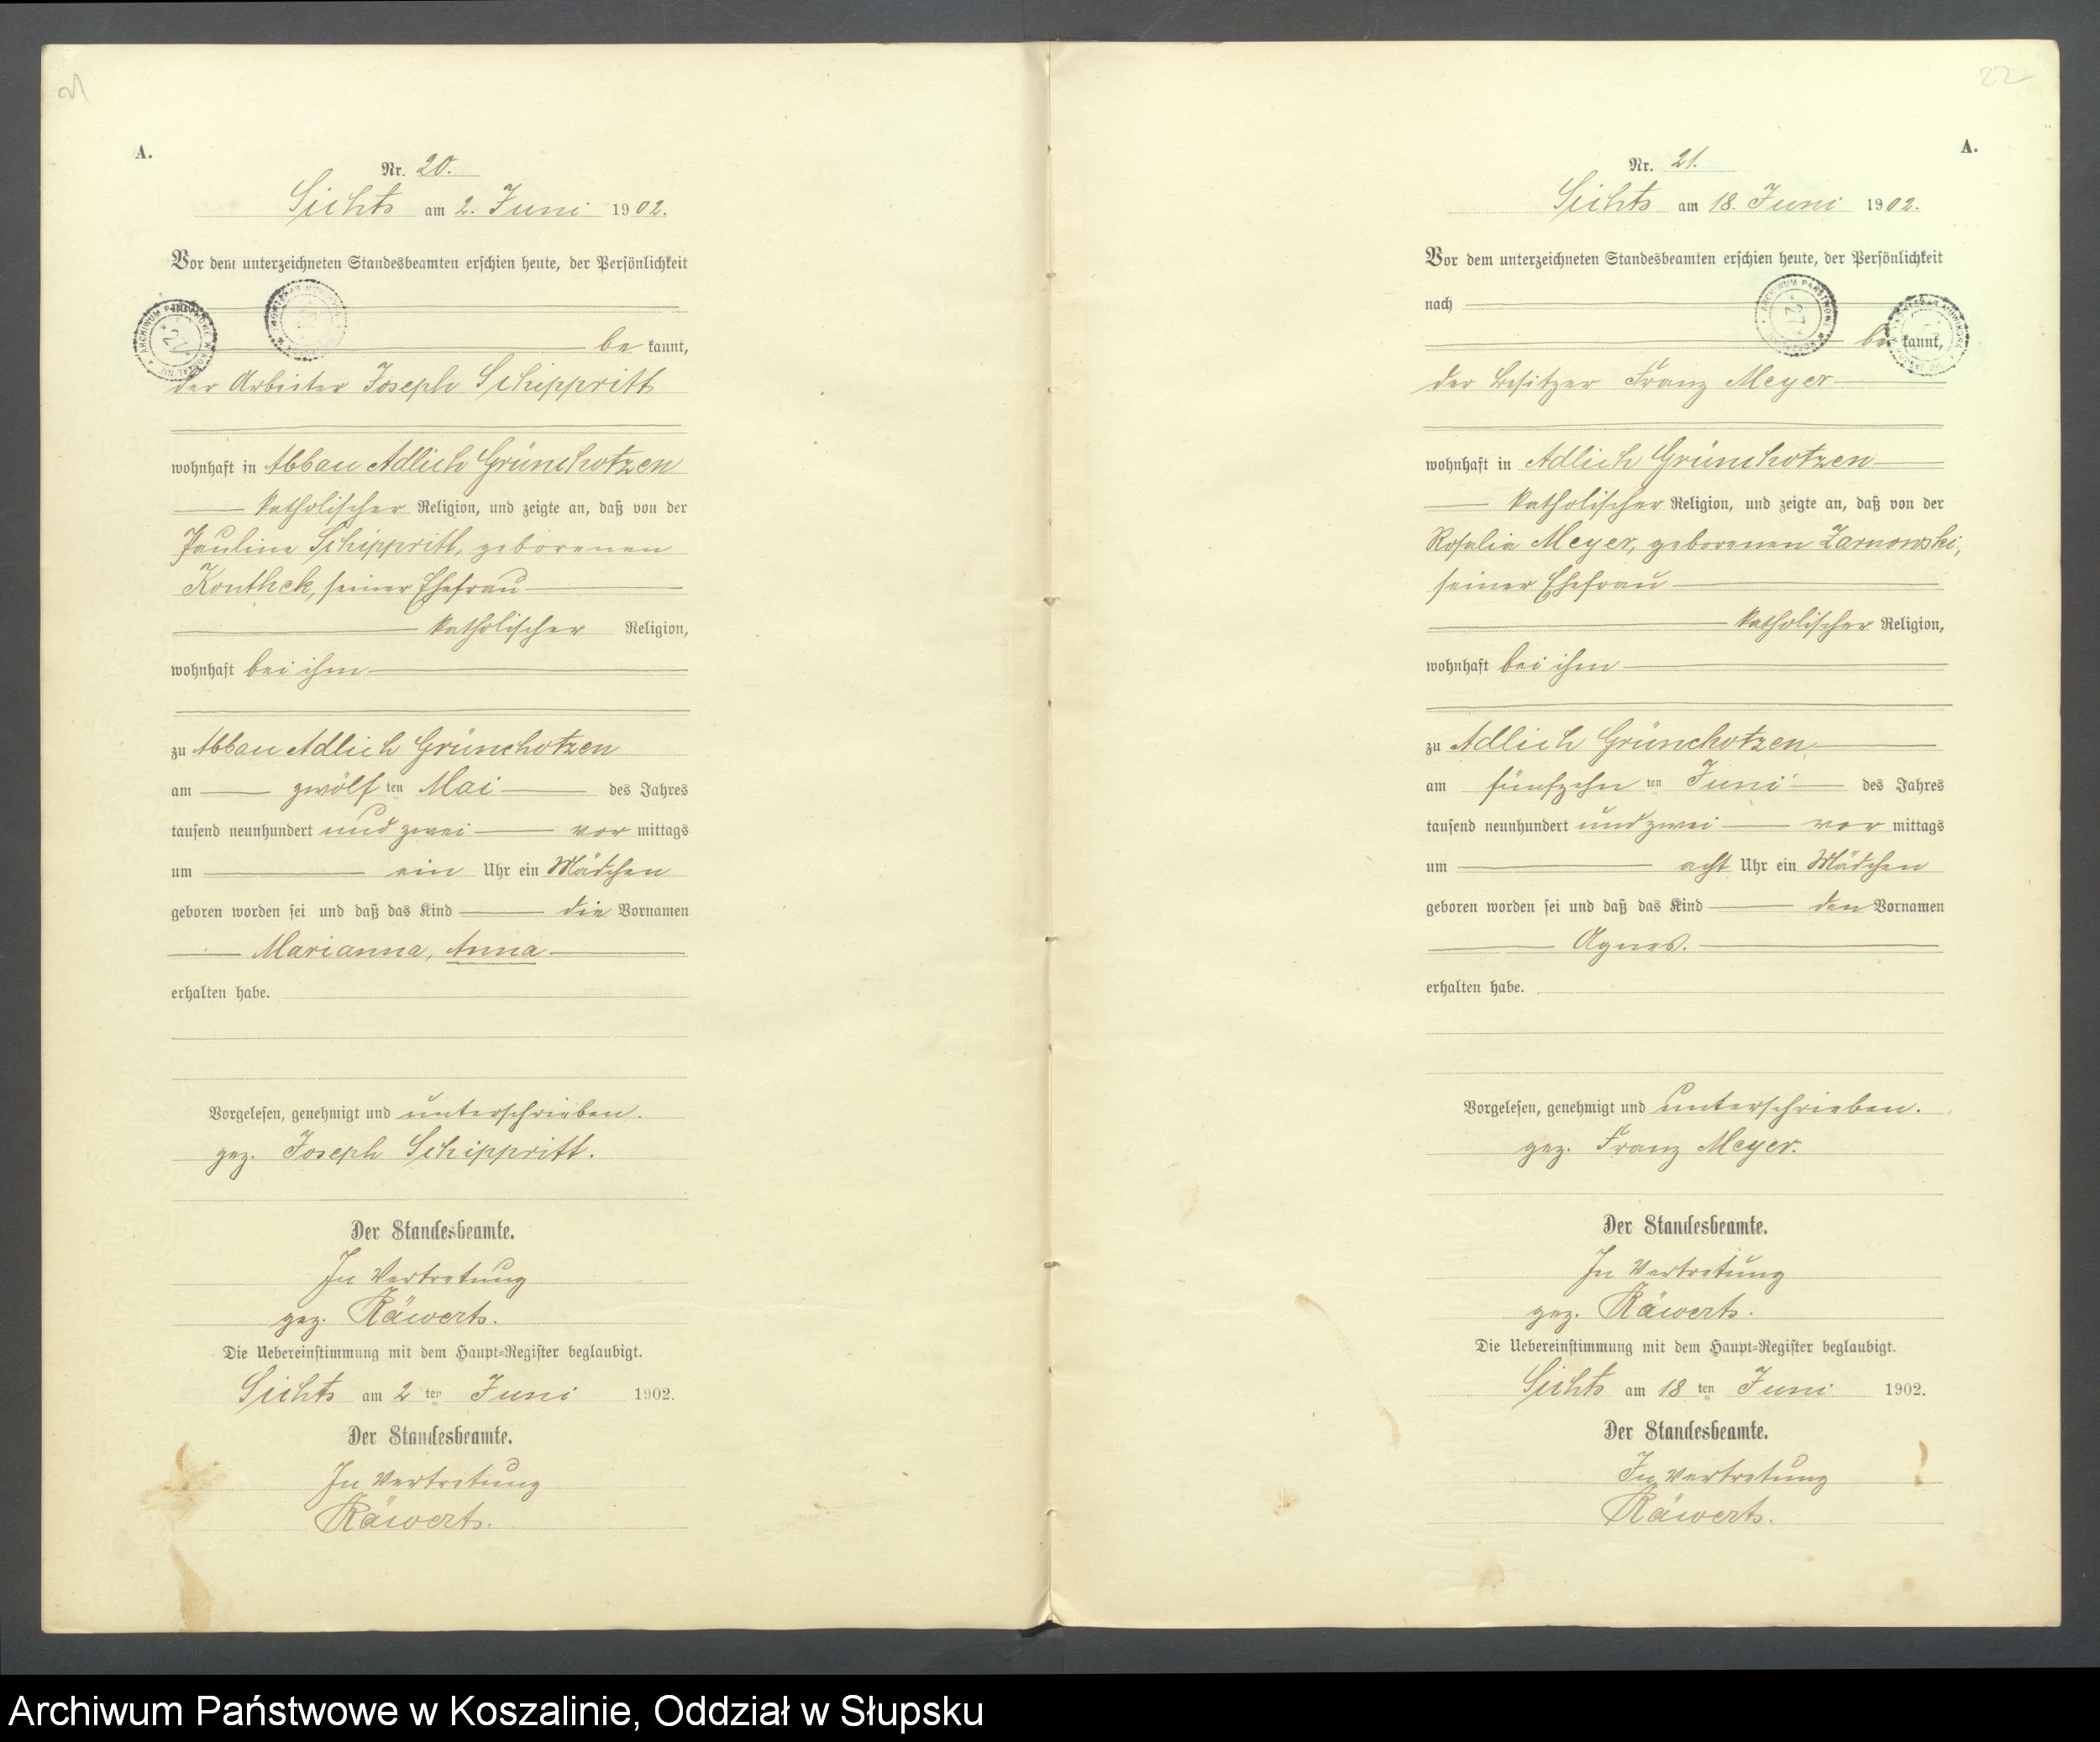 21
A.
Nr. 20.
Sichts am 2. Juni 1902.
Vor dem unterzeichneten Standesbeamten erschien heute, der Persönlichkeit
be kannt,
der Arbeiter Joseph Schippritt
wohnhaft in Abbau Adlich Grünchotzen
katholischer Religion, und zeigte an, daß von der
Pauline Schippritt, geborenen
Konthek, seiner Ehefrau
katholischer Religion,
wohnhaft bei ihm
zu Abbau Adlich Grünchotzen
am zwölf ten Mai des Jahres
tausend neunhundert und zwei vor mittags
um ein Uhr ein Mädchen
geboren worden sei und daß das Kind die Vornamen
Marianna, Anna
erhalten habe.
Vorgelesen, genehmigt und unterschrieben.
gez. Joseph Schippritt.
Der Standesbeamte.
In Vertretung
gez. Räwerts.
Die Uebereinstimmung mit dem Haupt-Register beglaubigt.
Sichts am 2 ten Juni 1902.
Der Standesbeamte.
In Vertretung
Räwerts.
22
A.
Nr. 21.
Sichts am 18. Juni 1902.
Vor dem unterzeichneten Standesbeamten erschien heute, der Persönlichkeit
nach
be kannt,
der Besitzer Franz Meyer
wohnhaft in Adlich Grünchotzen
katholischer Religion, und zeigte an, daß von der
Rosalie Meyer, geborenen Zarnowski,
seiner Ehefrau
katholischer Religion,
wohnhaft bei ihm
zu Adlich Grünchotzen
am fünfzehn ten Juni des Jahres
tausend neunhundert und zwei vor mittags
um acht Uhr ein Mädchen
geboren worden sei und daß das Kind den Vornamen
Agnes.
erhalten habe.
Vorgelesen, genehmigt und unterschrieben.
gez. Franz Meyer.
Der Standesbeamte.
In Vertretung
gez. Räwerts.
Die Uebereinstimmung mit dem Haupt-Register beglaubigt.
Sichts am 18 ten Juni 1902.
Der Standesbeamte.
In Vertretung
Räwerts.
Archiwum Państwowe w Koszalinie, Oddział w Słupsku